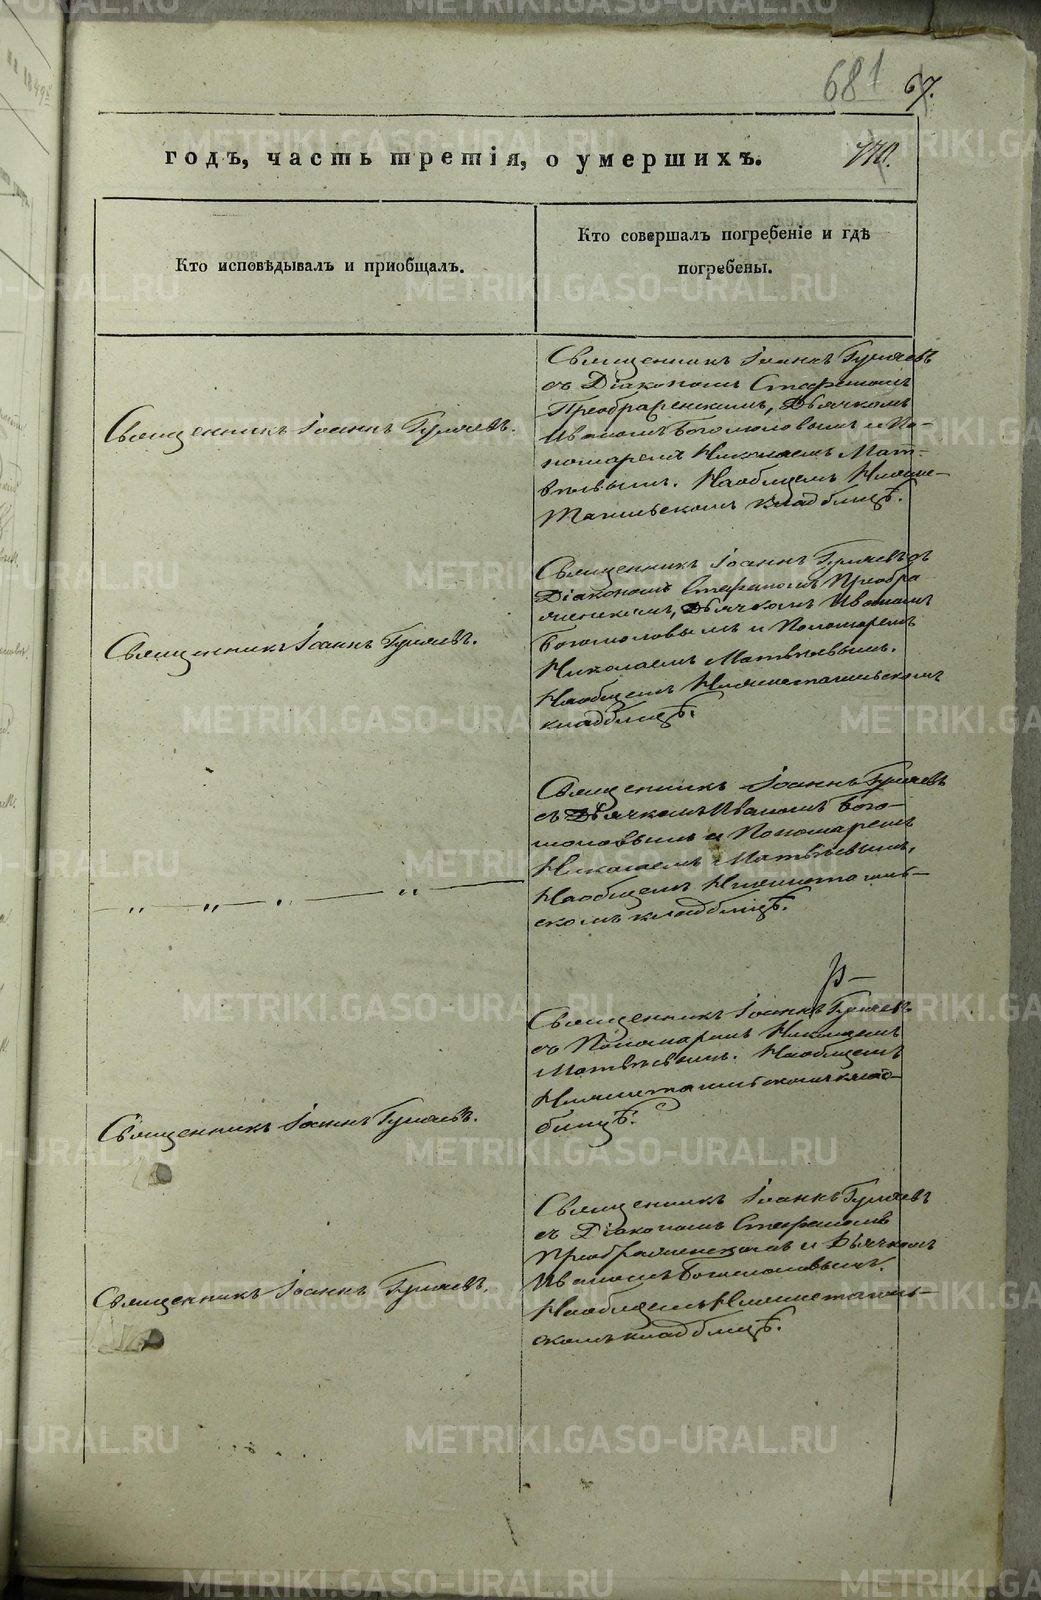 681 67.
годъ, часть третія, о умершихъ.
770.
Кто исповѣдывалъ и приобщалъ.
Кто совершалъ погребеніе и гдѣ
погребены.
Священникъ Іоаннъ Гуляевъ.
Священникъ Іоаннъ Гуляевъ
съ Діакономъ Стефаномъ
Преображенскимъ, Дьячкомъ
Иваномъ Богомоловымъ и По-
номаремъ Николаемъ Мат-
вѣевымъ. На общемъ Нижне-
Тагильскомъ кладбищѣ.
Священникъ Іоаннъ Гуляевъ.
Священникъ Іоаннъ Гуляевъ съ
Діакономъ Стефаномъ Преобра
женскимъ, Дьячкомъ Иваномъ
Богомоловымъ и Пономаремъ
Николаемъ Матвѣевымъ.
На общемъ Нижнетагильскомъ
кладбищѣ.
„ „ „ „
Священникъ Іоаннъ Гуляевъ
съ Дьячкомъ Иваномъ Бого-
моловымъ и Пономаремъ
Николаемъ Матвѣевымъ.
На общемъ Нижнетагиль-
скомъ кладбищѣ.
Священникъ Іоаннъ Гуляевъ.
Священникъ Іоаннъ Гуляевъ
съ Пономаремъ Николаемъ
Матвѣевымъ. На общемъ
Нижнетагильскомъ клад-
бищѣ.
Священникъ Іоаннъ Гуляевъ.
Священникъ Іоаннъ Гуляевъ
съ Діакономъ Стефаномъ
Преображенскимъ и Дьячкомъ
Иваномъ Богомоловымъ.
На общемъ Нижнетагиль-
скомъ кладбищѣ.
METRIKI.GASO-URAL.RU